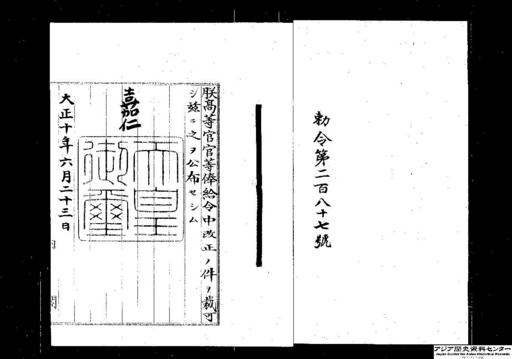 勅令第二百八十七號
朕高等官官等俸給令中改正ノ件ヲ裁可
シ玆ニ之ヲ公布セシム
嘉仁
天皇御璽
大正十年六月二十三日
アジア歴史資料センター
Japan Center for Asian Historical Records